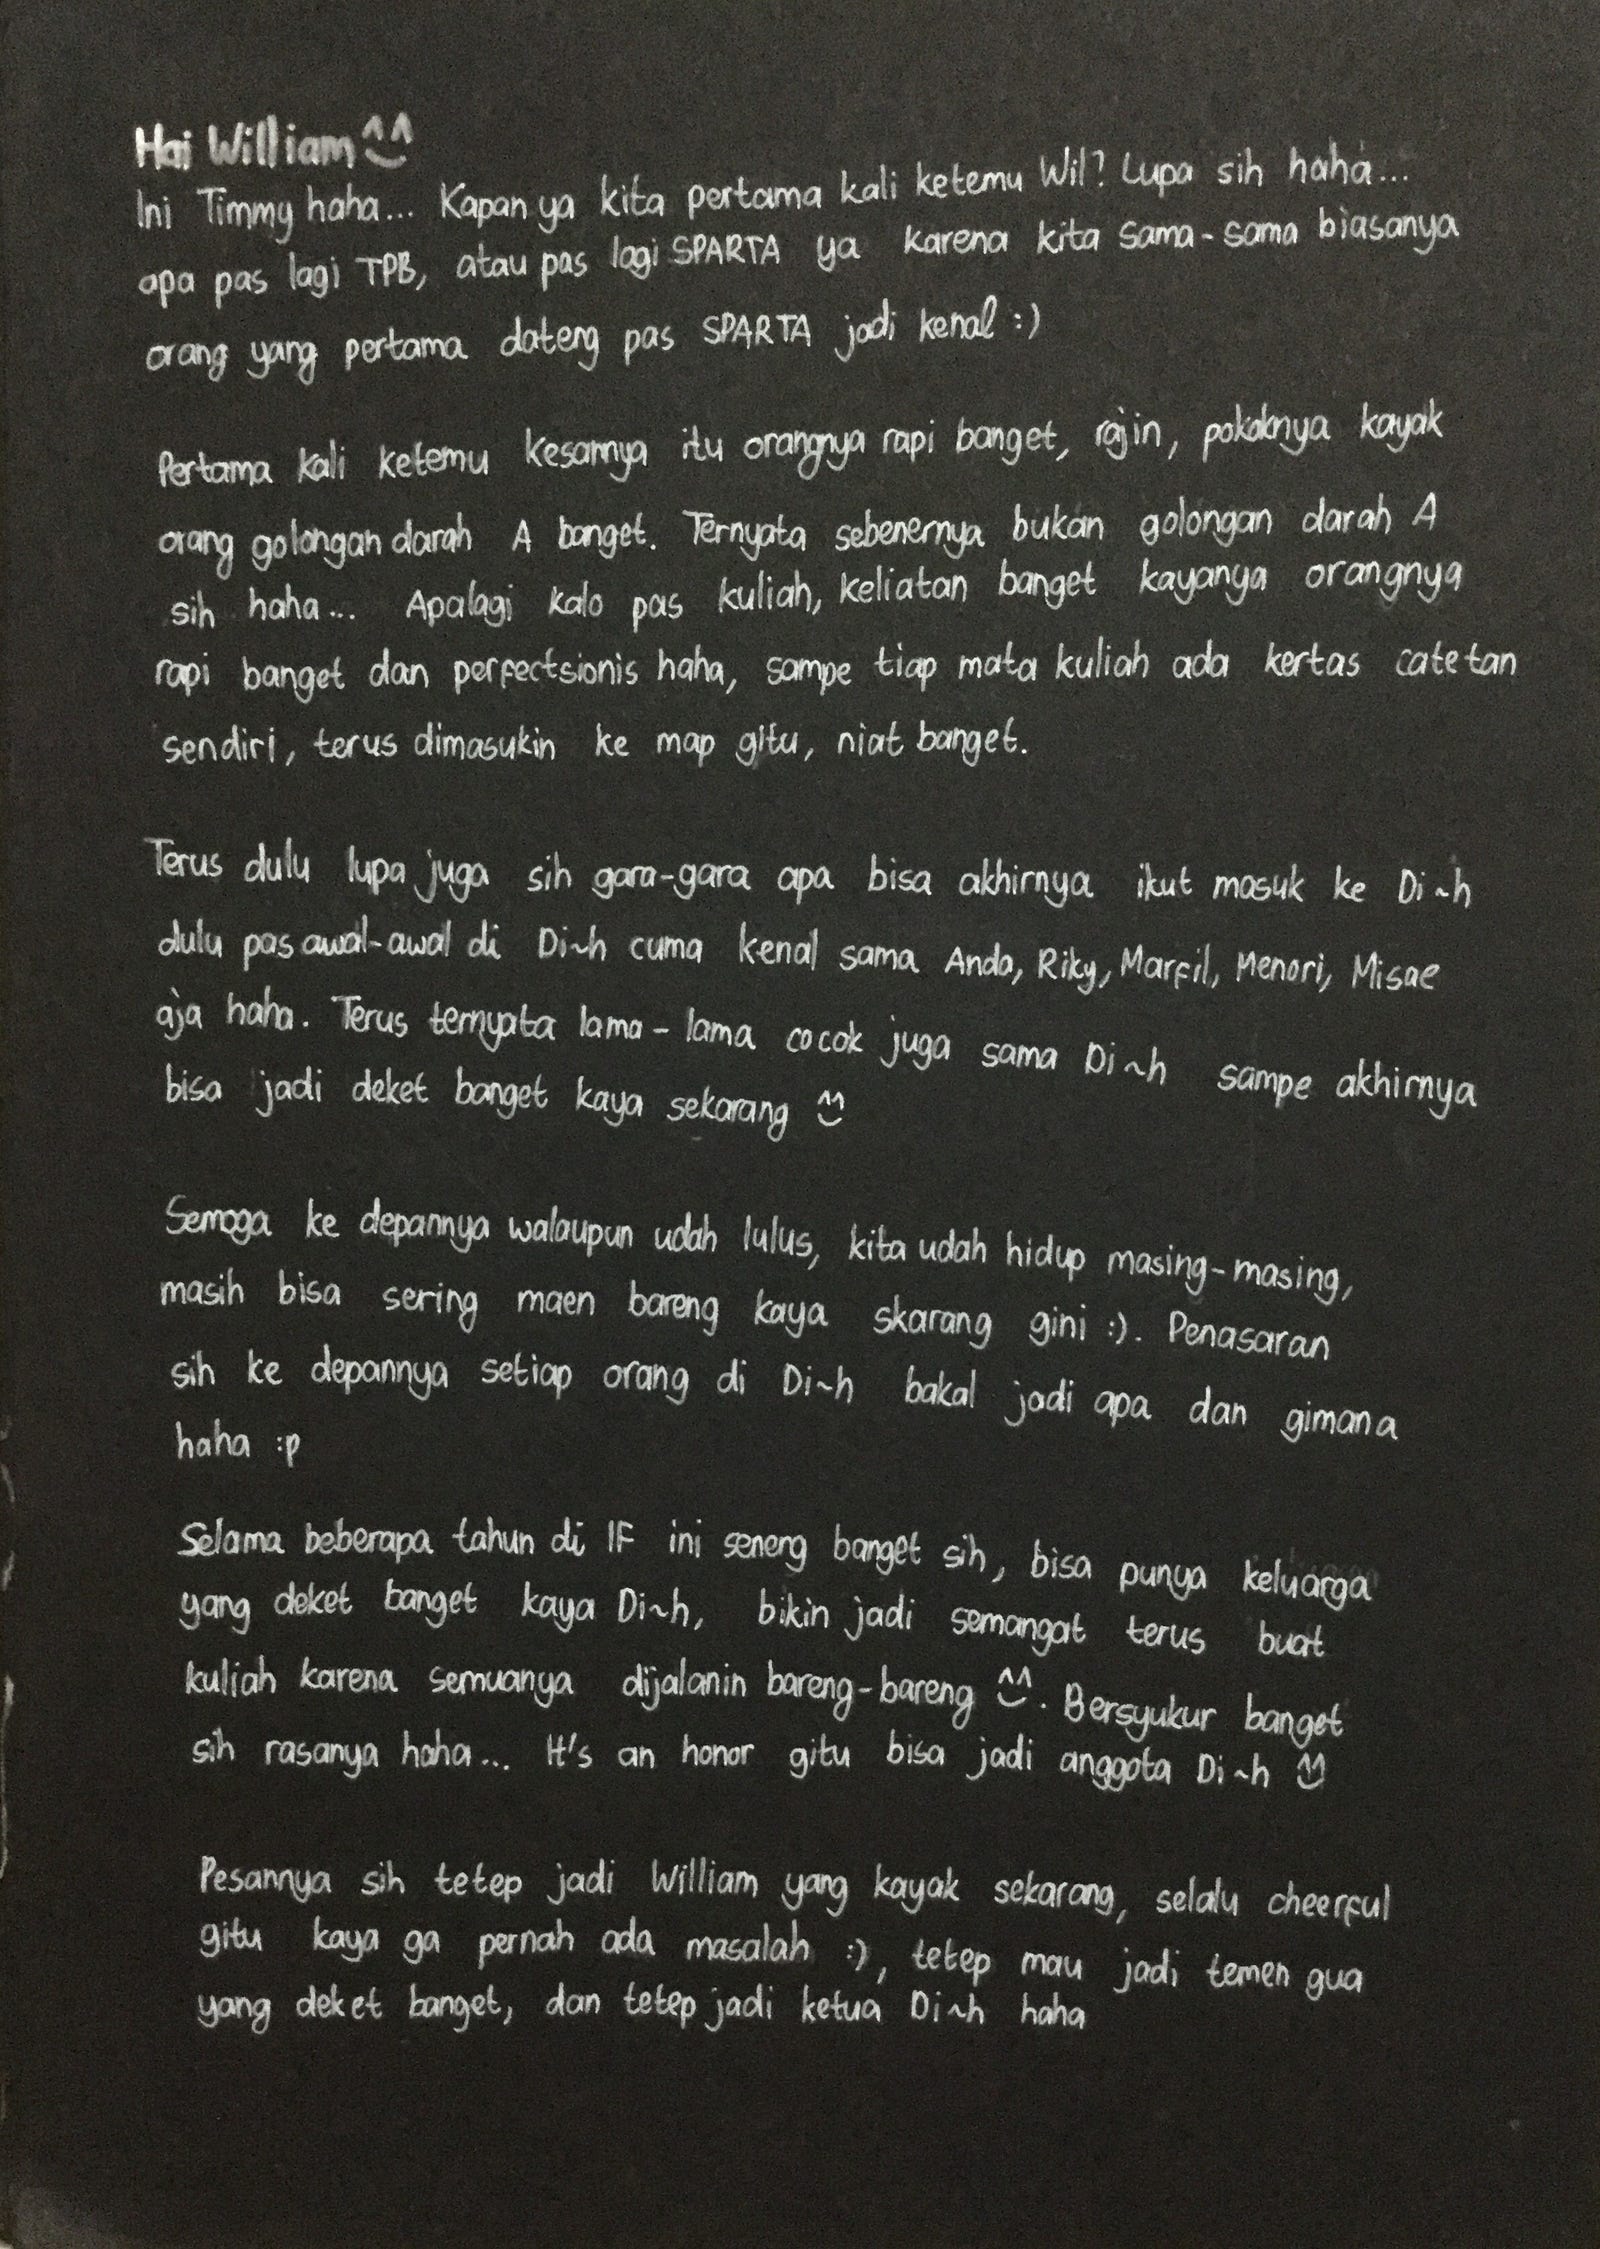 Hai William ^^
Ini Timmy haha... Kapan ya kita pertama kali ketemu Wil? Lupa sih haha...
apa pas lagi TPB, atau pas lagi SPARTA ya karena kita sama-sama biasanya
orang yang pertama dateng pas SPARTA jadi kenal :)
Pertama kali ketemu kesannya itu orangnya rapi banget, rajin, pokoknya kayak
orang golongan darah A banget. Ternyata sebenernya bukan golongan darah A
sih haha... Apalagi kalo pas kuliah, keliatan banget kayanya orangnya
rapi banget dan perfectsionis haha, sampe tiap mata kuliah ada kertas catetan
sendiri, terus dimasukin ke map gitu, niat banget.
Terus dulu lupa juga sih gara-gara apa bisa akhirnya ikut masuk ke Di~h
dulu pas awal-awal di Di~h cuma kenal sama Anda, Riky, Marfil, Menori, Misae
aja haha. Terus ternyata lama-lama cocok juga sama Di~h sampe akhirnya
bisa jadi deket banget kaya sekarang ^^
Semoga ke depannya walaupun udah lulus, kita udah hidup masing-masing,
masih bisa sering maen bareng kaya skarang gini :). Penasaran
sih ke depannya setiap orang di Di~h bakal jadi apa dan gimana
haha :p
Selama beberapa tahun di IF ini seneng banget sih, bisa punya keluarga
yang deket banget kaya Di~h, bikin jadi semangat terus buat
kuliah karena semuanya dijalanin bareng-bareng ^^. Bersyukur banget
sih rasanya haha... It's an honor gitu bisa jadi anggota Di~h ^^
Pesannya sih tetep jadi William yang kayak sekarang, selalu cheerful
gitu kaya ga pernah ada masalah :), tetep mau jadi temen gua
yang deket banget, dan tetep jadi ketua Di~h haha